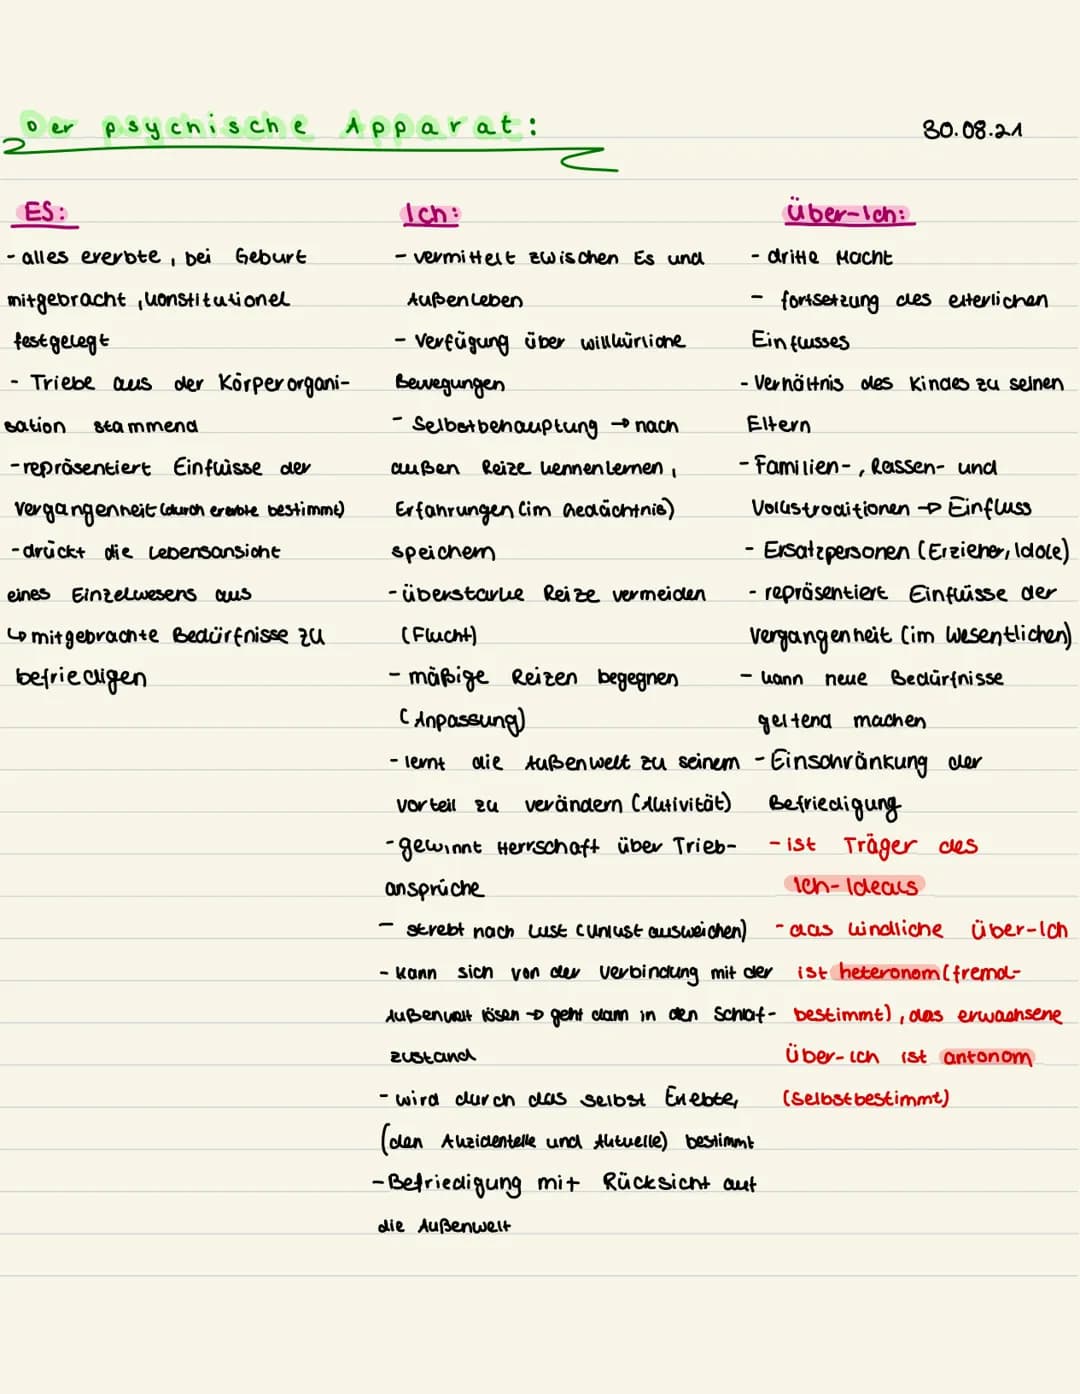 Der psychische Apparat:
30.08.21
ES:
- alles ererbte, bei Geburt
mitgebracht, konstitutionel
festgelegt
- Triebe aus der Körperorgani-
sation stammend
- repräsentiert Einflüsse der
Vergangenheit (durch ererbte bestimmt)
- drückt die Lebensansicht
eines Einzelwesens aus
↳ mitgebrachte Bedürfnisse zu
befriedigen
Ich:
- vermittelt zwischen Es und
Außenleben
- Verfügung über willkürliche
Bewegungen
- Selbstbehauptung → nach
außen Reize kennenlernen,
Erfahrungen (im Gedächtnis)
speichern
- überstarke Reize vermeiden
(Flucht)
- mäßige Reizen begegnen
(Anpassung)
- lernt die Außenwelt zu seinem
Vorteil zu verändern (Aktivität)
- gewinnt Herrschaft über Trieb-
ansprüche
- strebt nach Lust (Unlust ausweichen)
- kann sich von der Verbindung mit der
Außenwelt lösen → geht dann in den Schlaf-
zustand
- wird durch das selbst Erlebte,
(den Akzidentelle und Aktuelle) bestimmt
- Befriedigung mit Rücksicht auf
die Außenwelt
Über-Ich:
- dritte Macht
- fortsetzung des elterlichen
Einflusses
- Verhältnis des Kindes zu seinen
Eltern
- Familien-, Rassen- und
Volkstraditionen → Einfluss
- Ersatzpersonen (Erzieher, Idole)
- repräsentiert Einflüsse der
Vergangenheit (im Wesentlichen)
- kann neue Bedürfnisse
geltend machen
- Einschränkung der
Befriedigung
- ist Träger des
Ich-Ideals
- das kindliche Über-Ich
ist heteronom (fremd-
bestimmt), das erwachsene
Über-Ich ist antonom
(Selbstbestimmt)